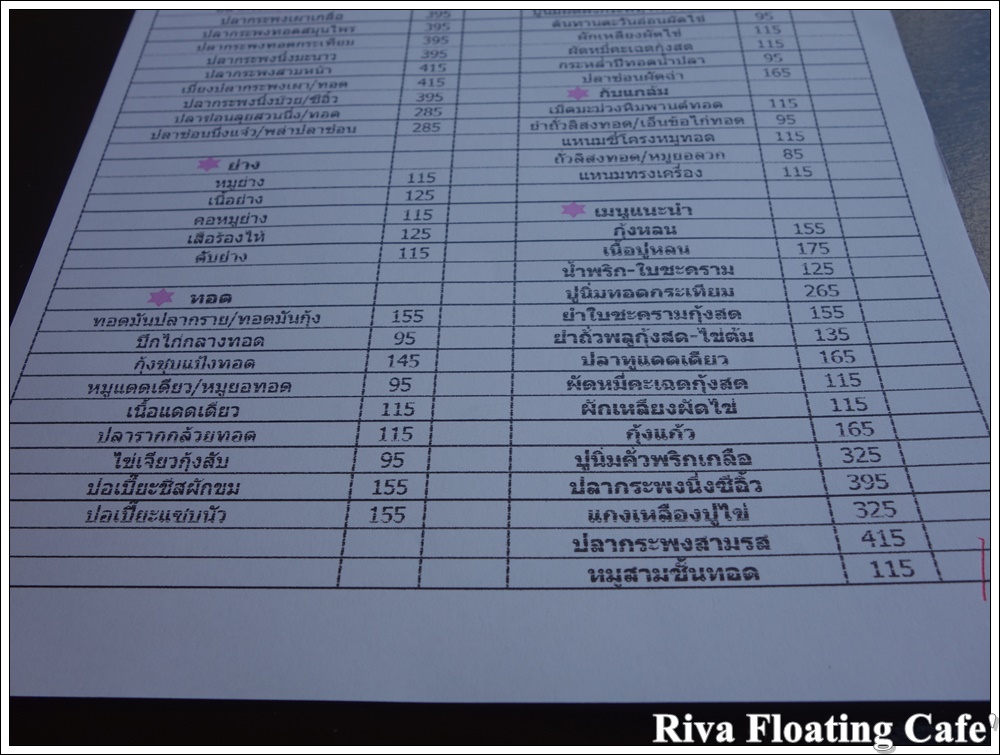 ปลากระพงเผาเกลือ 395
ปลากระพงทอดสมุนไพร 395
ปลากระพงทอดกระเทียม 395
ปลากระพงนึ่งมะนาว 395
ปลากระพงสามหน้า 415
เมี่ยงปลากระพงเผา/ทอด 415
ปลากระพงนึ่งบ๊วย/ซีอิ๊ว 395
ปลาช่อนลุยสวนนึ่ง/ทอด 285
ปลาช่อนนึ่งแจ่ว/พล่าปลาช่อน 285
ย่าง
หมูย่าง 115
เนื้อย่าง 125
คอหมูย่าง 115
เสือร้องไห้ 125
ตับย่าง 115
ทอด
ทอดมันปลากราย/ทอดมันกุ้ง 155
ปีกไก่กลางทอด 95
กุ้งชุบแป้งทอด 145
หมูแดดเดียว/หมูยอทอด 95
เนื้อแดดเดียว 115
ปลารากกล้วยทอด 115
ไข่เจียวกุ้งสับ 95
ปอเปี๊ยะชีสผักขม 155
ปอเปี๊ยะแซบนัว 155
ต้นทานตะวันอ่อนผัดไข่ 95
ผักเหลียงผัดไข่ 115
ผัดหมี่กะเฉดกุ้งสด 115
กระหล่ำปีทอดน้ำปลา 95
ปลาช่อนผัดฉ่า 165
กับแกล้ม
เม็ดมะม่วงหิมพานต์ทอด 115
ยำถั่วลิสงทอด/เอ็นข้อไก่ทอด 95
แหนมซี่โครงหมูทอด 115
ถั่วลิสงทอด/หมูยอลวก 85
แหนมทรงเครื่อง 115
เมนูแนะนำ
กุ้งหลน 155
เนื้อปูหลน 175
น้ำพริก-ใบชะคราม 125
ปูนิ่มทอดกระเทียม 265
ยำใบชะครามกุ้งสด 155
ยำถั่วพลูกุ้งสด-ไข่ต้ม 135
ปลาทูแดดเดียว 165
ผัดหมี่กะเฉดกุ้งสด 115
ผักเหลียงผัดไข่ 115
กุ้งแก้ว 165
ปูนิ่มคั่วพริกเกลือ 325
ปลากระพงนึ่งซีอิ้ว 395
แกงเหลืองปูไข่ 325
ปลากระพงสามรส 415
หมูสามชั้นทอด 115
Riva Floating Cafe'